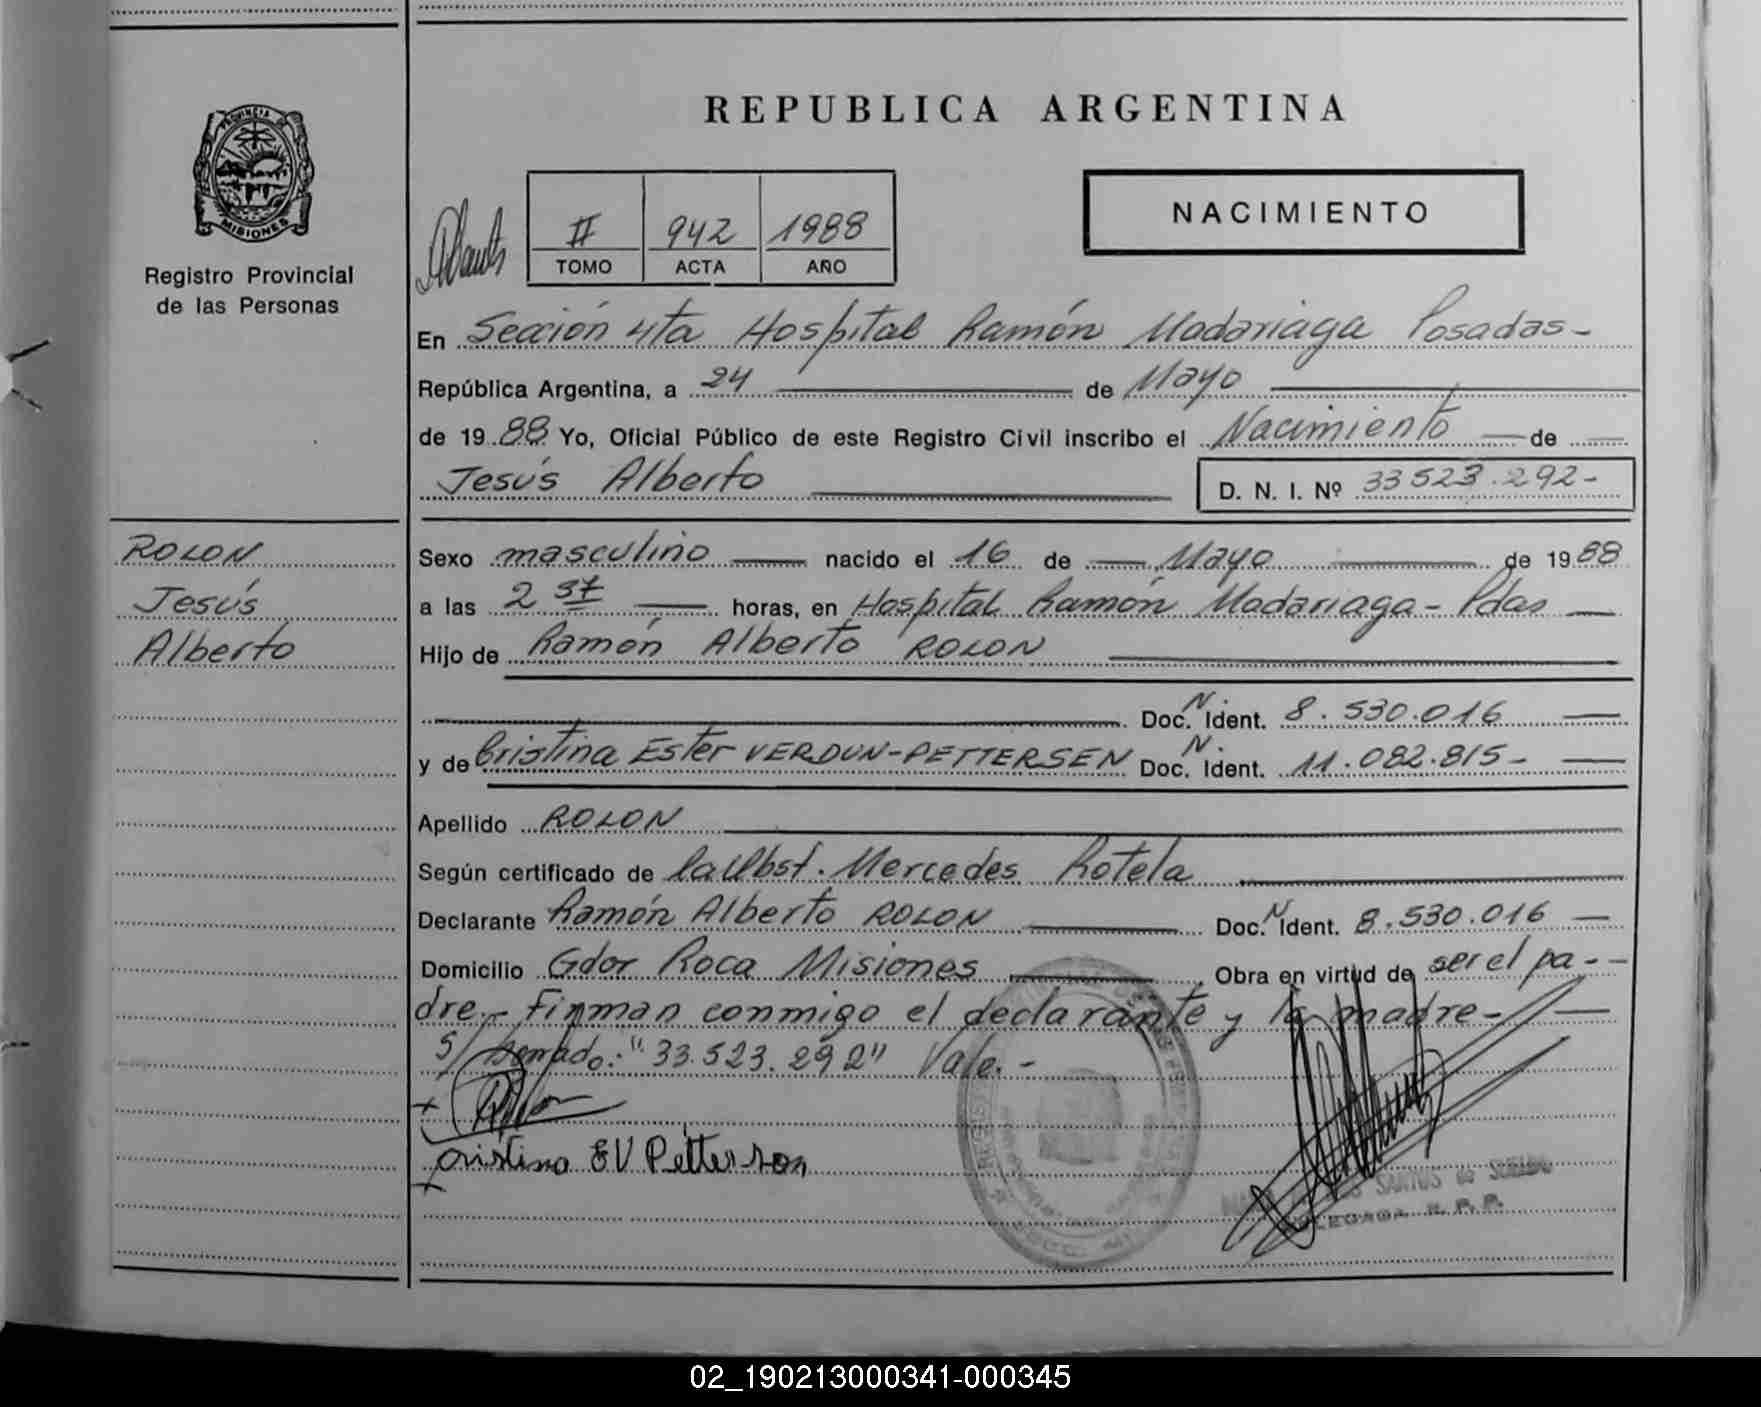 REPUBLICA ARGENTINA
PROVINCIA DE
MISIONES
Registro Provincial
de las Personas
II 942 1988
TOMO ACTA AÑO
NACIMIENTO
En Sección 4ta Hospital Ramón Madariaga Posadas-
República Argentina, a 24 de Mayo
de 1988 Yo, Oficial Público de este Registro Civil inscribo el Nacimiento de
Jesús Alberto D. N. I. Nº 33 523.292-
ROLON
Jesús
Alberto
Sexo masculino nacido el 16 de Mayo de 1988
a las 2 37 horas, en Hospital Ramón Madariaga - Pdas
Hijo de Ramón Alberto ROLON
Doc. N. Ident. 8.530.016
y de Cristina Ester VERDUN-PETTERSEN Doc. N. Ident. 11.082.815-
Apellido ROLON
Según certificado de la Obst. Mercedes Rotela
Declarante Ramón Alberto ROLON Doc. N Ident. 8.530.016
Domicilio Gdor Roca Misiones Obra en virtud de ser el pa-
dre.- Firman conmigo el declarante y la madre-
S/ borrado: "33.523.292" Vale.-
Cristina E V Pettersen
SANTOS de SUELDO
DELEGADA R. P. P.
02_190213000341-000345